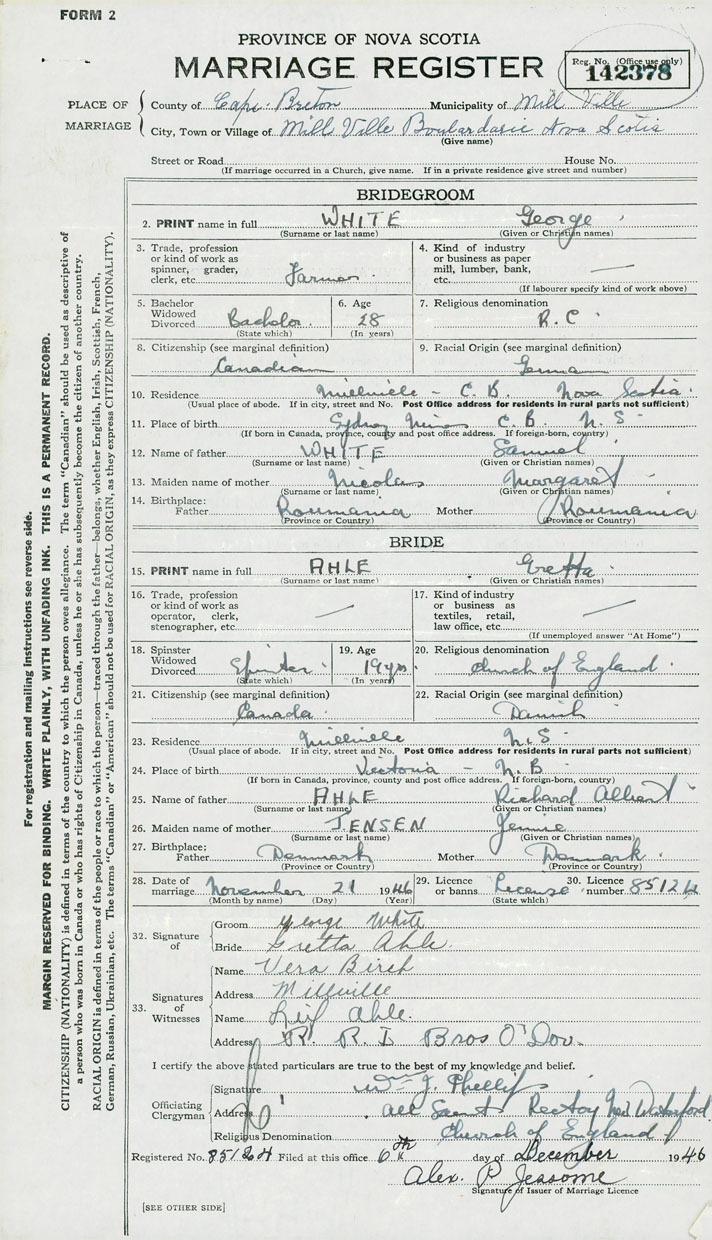 FORM 2
PROVINCE OF NOVA SCOTIA
MARRIAGE REGISTER
Reg. No. (Office use only)
142378
PLACE OF MARRIAGE
County of Cape Breton Municipality of Mill Ville
City, Town or Village of Mill Ville Boulardarie Nova Scotia
(Give name)
Street or Road House No.
(If marriage occurred in a Church, give name. If in a private residence give street and number)
BRIDEGROOM
2. PRINT name in full WHITE George
(Surname or last name) (Given or Christian names)
3. Trade, profession or kind of work as spinner, grader, clerk, etc. Farmer
4. Kind of industry or business as paper mill, lumber, bank, etc. —
(If labourer specify kind of work above)
5. Bachelor Widowed Divorced Bachelor (State which)
6. Age 28 (In years)
7. Religious denomination R.C
8. Citizenship (see marginal definition) Canadian
9. Racial Origin (see marginal definition)
10. Residence Millville - C.B. Nova Scotia
(Usual place of abode. If in city, street and No. Post Office address for residents in rural parts not sufficient)
11. Place of birth Sydney Mines C.B. N.S
(If born in Canada, province, county and post office address. If foreign-born, country)
12. Name of father WHITE Samuel
(Surname or last name) (Given or Christian names)
13. Maiden name of mother Margaret
(Surname or last name) (Given or Christian names)
14. Birthplace: Father Roumania Mother Roumania
(Province or Country) (Province or Country)
BRIDE
15. PRINT name in full AHLE Gretta
(Surname or last name) (Given or Christian names)
16. Trade, profession or kind of work as operator, clerk, stenographer, etc. —
17. Kind of industry or business as textiles, retail, law office, etc. —
(If unemployed answer "At Home")
18. Spinster Widowed Divorced Spinster (State which)
19. Age 19 yrs (In years)
20. Religious denomination Church of England
21. Citizenship (see marginal definition) Canada
22. Racial Origin (see marginal definition) Danish
23. Residence Millville N.S
(Usual place of abode. If in city, street and No. Post Office address for residents in rural parts not sufficient)
24. Place of birth Victoria - N.B.
(If born in Canada, province, county and post office address. If foreign-born, country)
25. Name of father AHLE Richard Albert
(Surname or last name) (Given or Christian names)
26. Maiden name of mother JENSEN Jennie
(Surname or last name) (Given or Christian names)
27. Birthplace: Father Denmark Mother Denmark
(Province or Country) (Province or Country)
28. Date of marriage November 21 1946
(Month by name) (Day) (Year)
29. Licence or banns License (State which)
30. Licence number
32. Signature of
Groom George White
Bride Gretta Ahle.
33. Signatures of Witnesses
Name Vera Birch
Address Millville
Name Leif Ahle.
Address R. R. 1 Bros O'Dor.
I certify the above stated particulars are true to the best of my knowledge and belief.
Officiating Clergyman
Signature Wm J. Phillips
Address All Saints Rectory New Waterford
Religious Denomination Church of England
Registered No. Filed at this office 6th day of December 1946
Alex. P Jessome
Signature of Issuer of Marriage Licence
[SEE OTHER SIDE]
For registration and mailing instructions see reverse side.
MARGIN RESERVED FOR BINDING. WRITE PLAINLY, WITH UNFADING INK. THIS IS A PERMANENT RECORD.
CITIZENSHIP (NATIONALITY) is defined in terms of the country to which the person owes allegiance. The term "Canadian" should be used as descriptive of
a person who was born in Canada or who has rights of Citizenship in Canada, unless he or she has subsequently become the citizen of another country.
RACIAL ORIGIN is defined in terms of the people or race to which the person—traced through the father—belongs, whether English, Irish, Scottish, French,
German, Russian, Ukrainian, etc. The terms "Canadian" or "American" should not be used for RACIAL ORIGIN, as they express CITIZENSHIP (NATIONALITY).